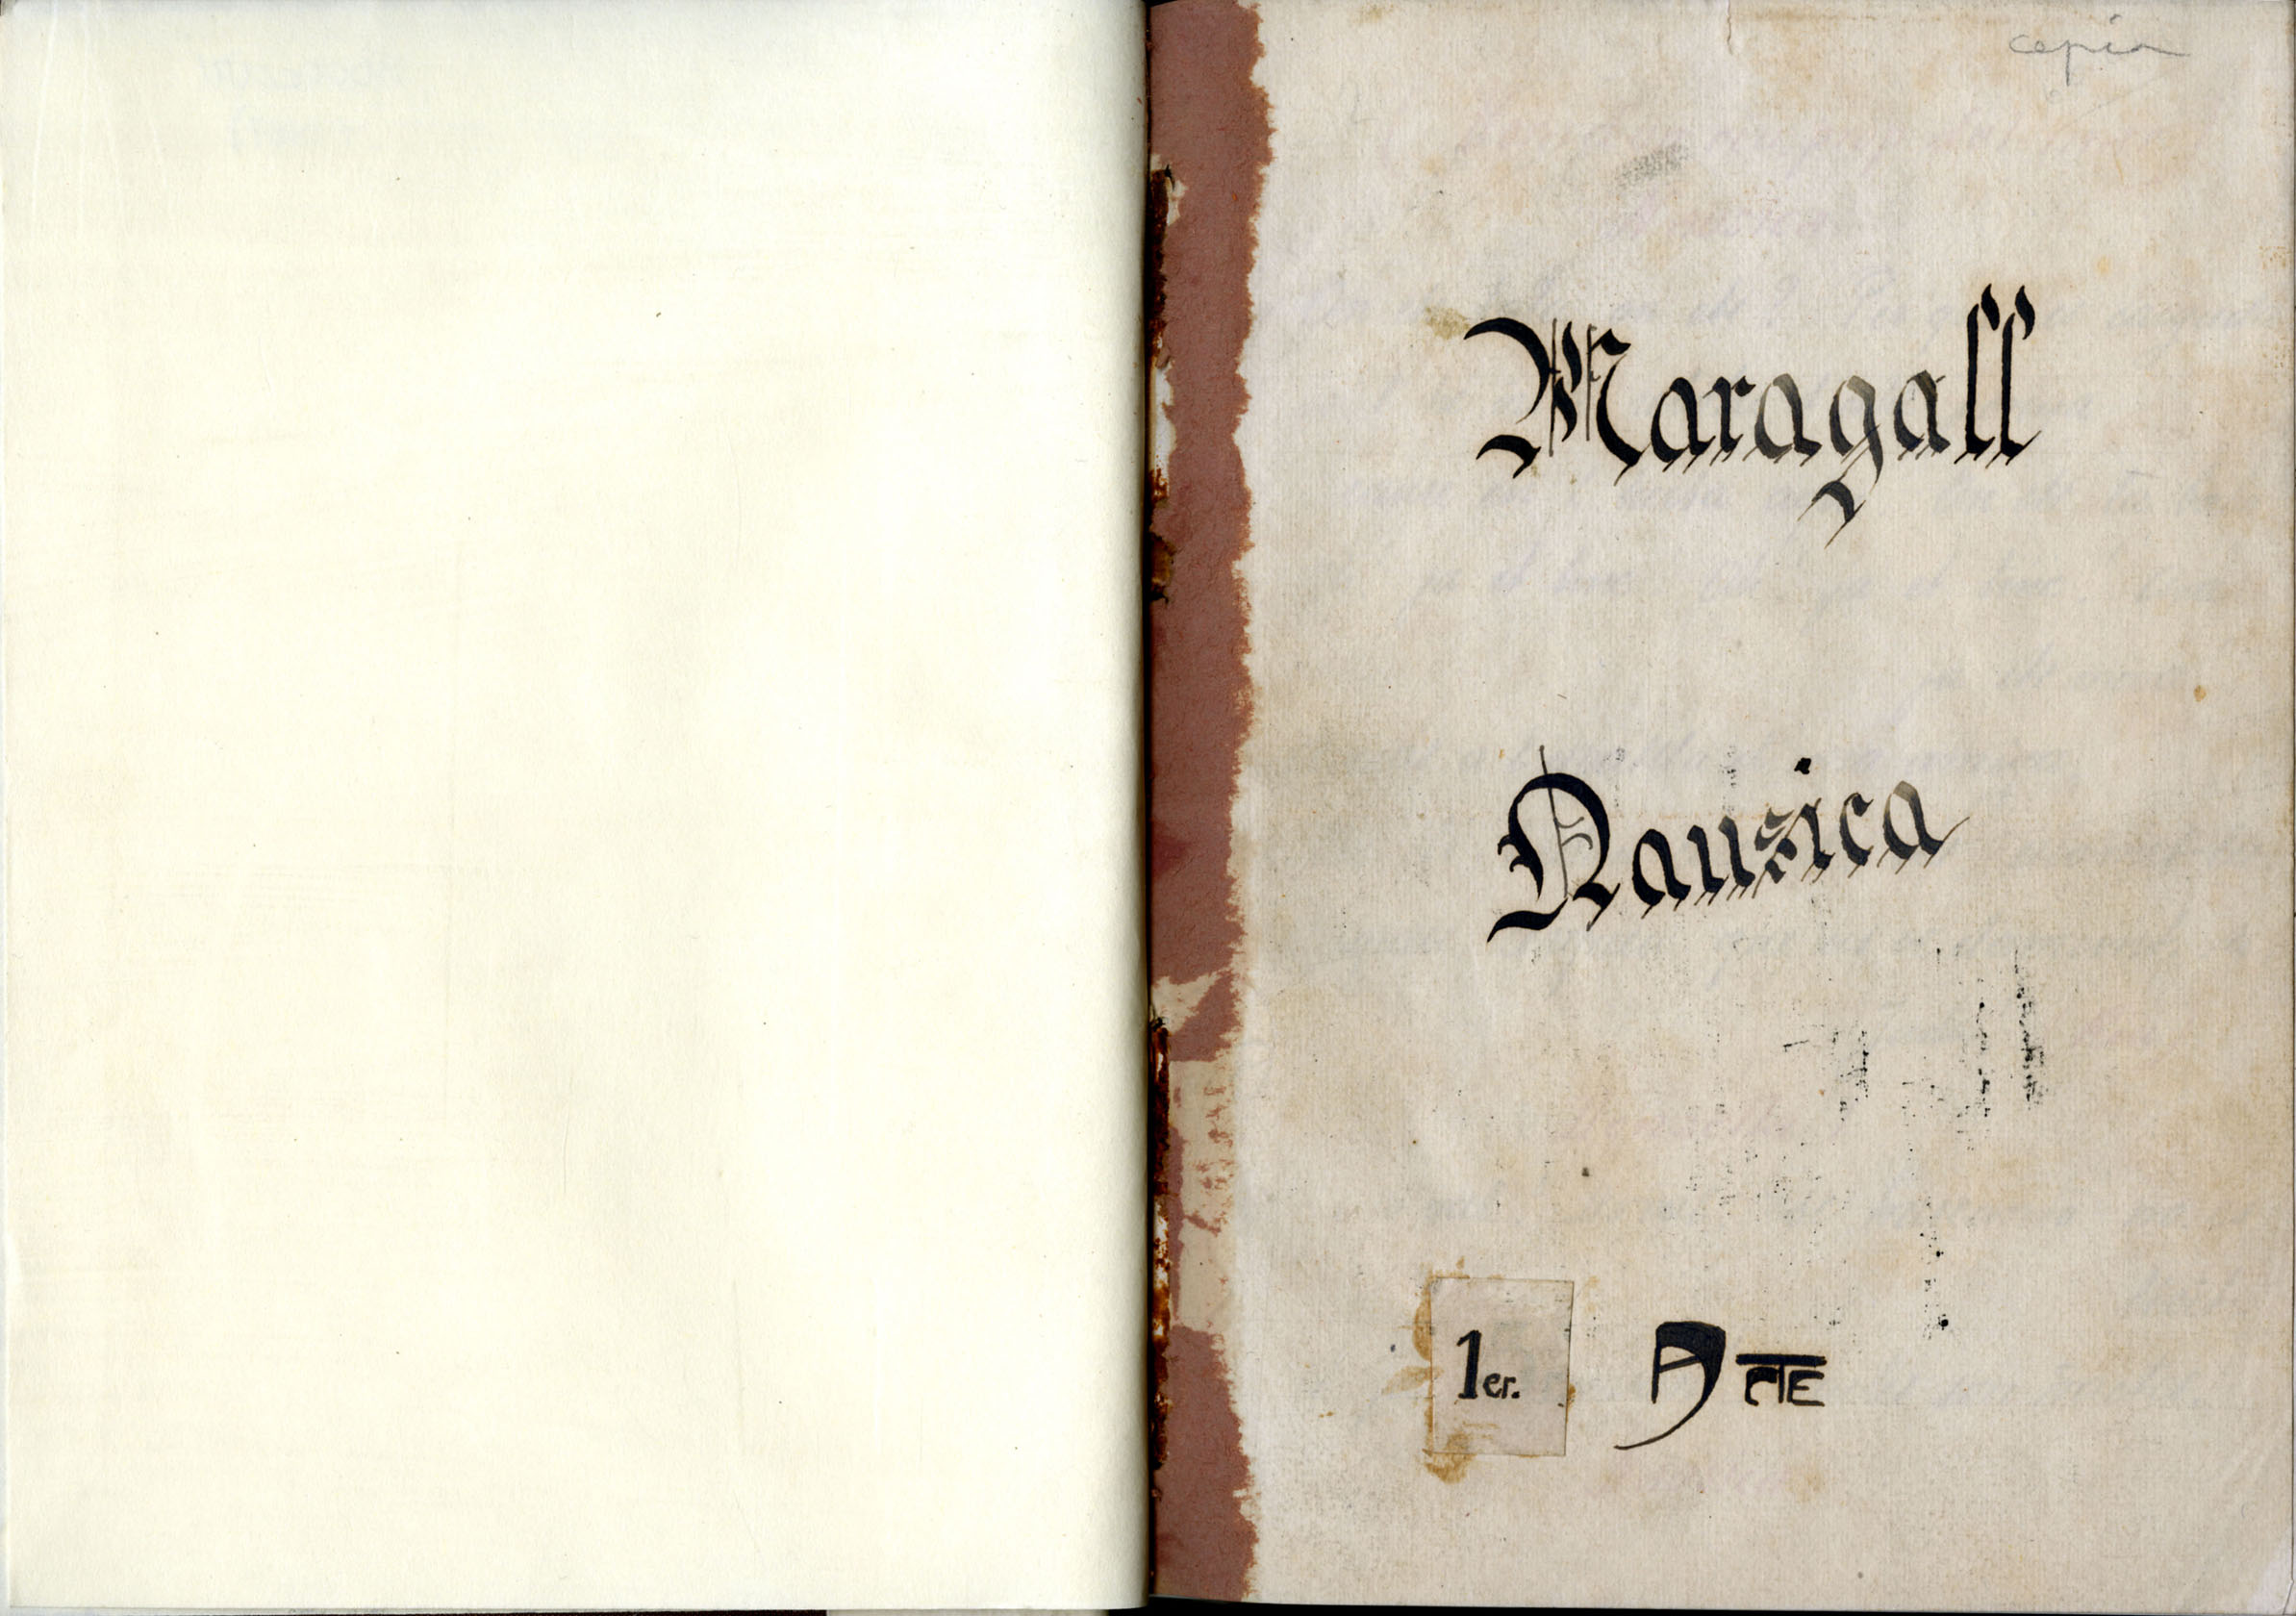 copia
Maragall
Nausica
1er. ACTE